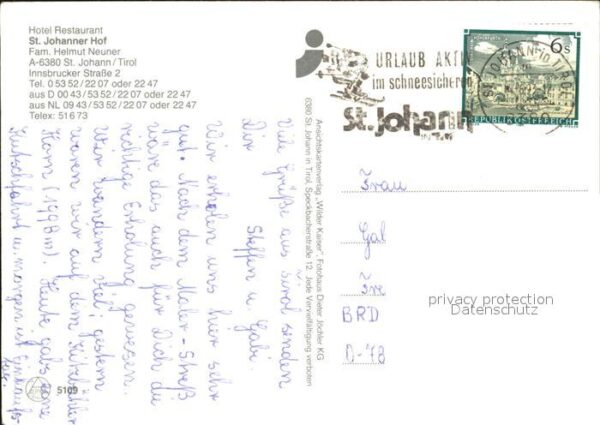 Hotel Restaurant
St. Johanner Hof
Fam. Helmut Neuner
A-6380 St. Johann/Tirol
Innsbrucker Straße 2
Tel. 0 53 52/22 07 oder 22 47
aus D 00 43/53 52/22 07 oder 22 47
aus NL 09 43/53 52/22 07 oder 22 47
Telex: 516 73
Viele Grüße aus Tirol senden
Dir Steffen u. Gabi.
Wir erholen uns hier sehr
gut. Nach dem Maler-Streß
wäre das auch für Dich die
richtige Erholung gewesen.
Wir wandern viel; gestern
waren wir auf dem Kitzbühler
Horn (1998m). Heute gabs eine
Kutschfahrt u. morgen ist Einkaufs-
tag.
5109
Ansichtskartenverlag „Wilder Kaiser", Fotohaus Dieter Jöchler KG
6380 St. Johann in Tirol, Speckbacherstraße 12. Jede Vervielfältigung verboten
URLAUB AKTIV
im schneesicheren
St. Johann
IN TIROL
6 S
REPUBLIK ÖSTERREICH
Frau
Gab
BRD
D-78
privacy protection
Datenschutz